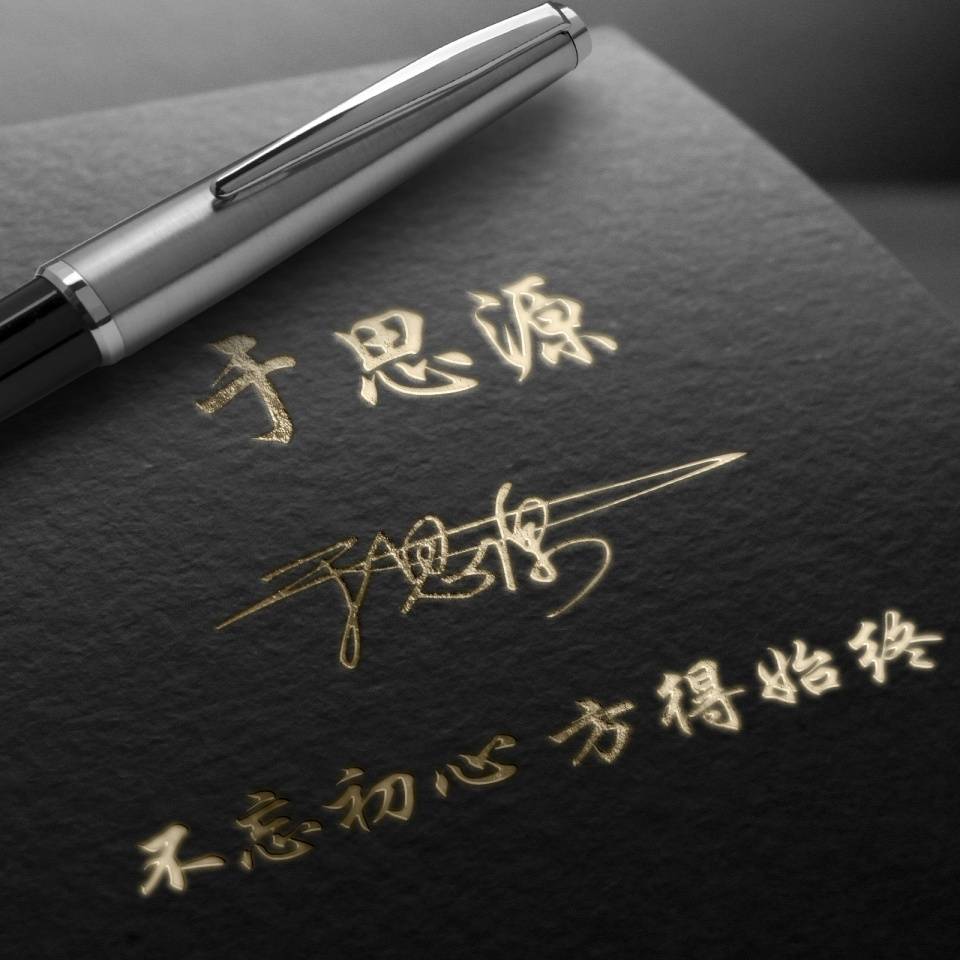 于思源
于思源
不忘初心 方得始终